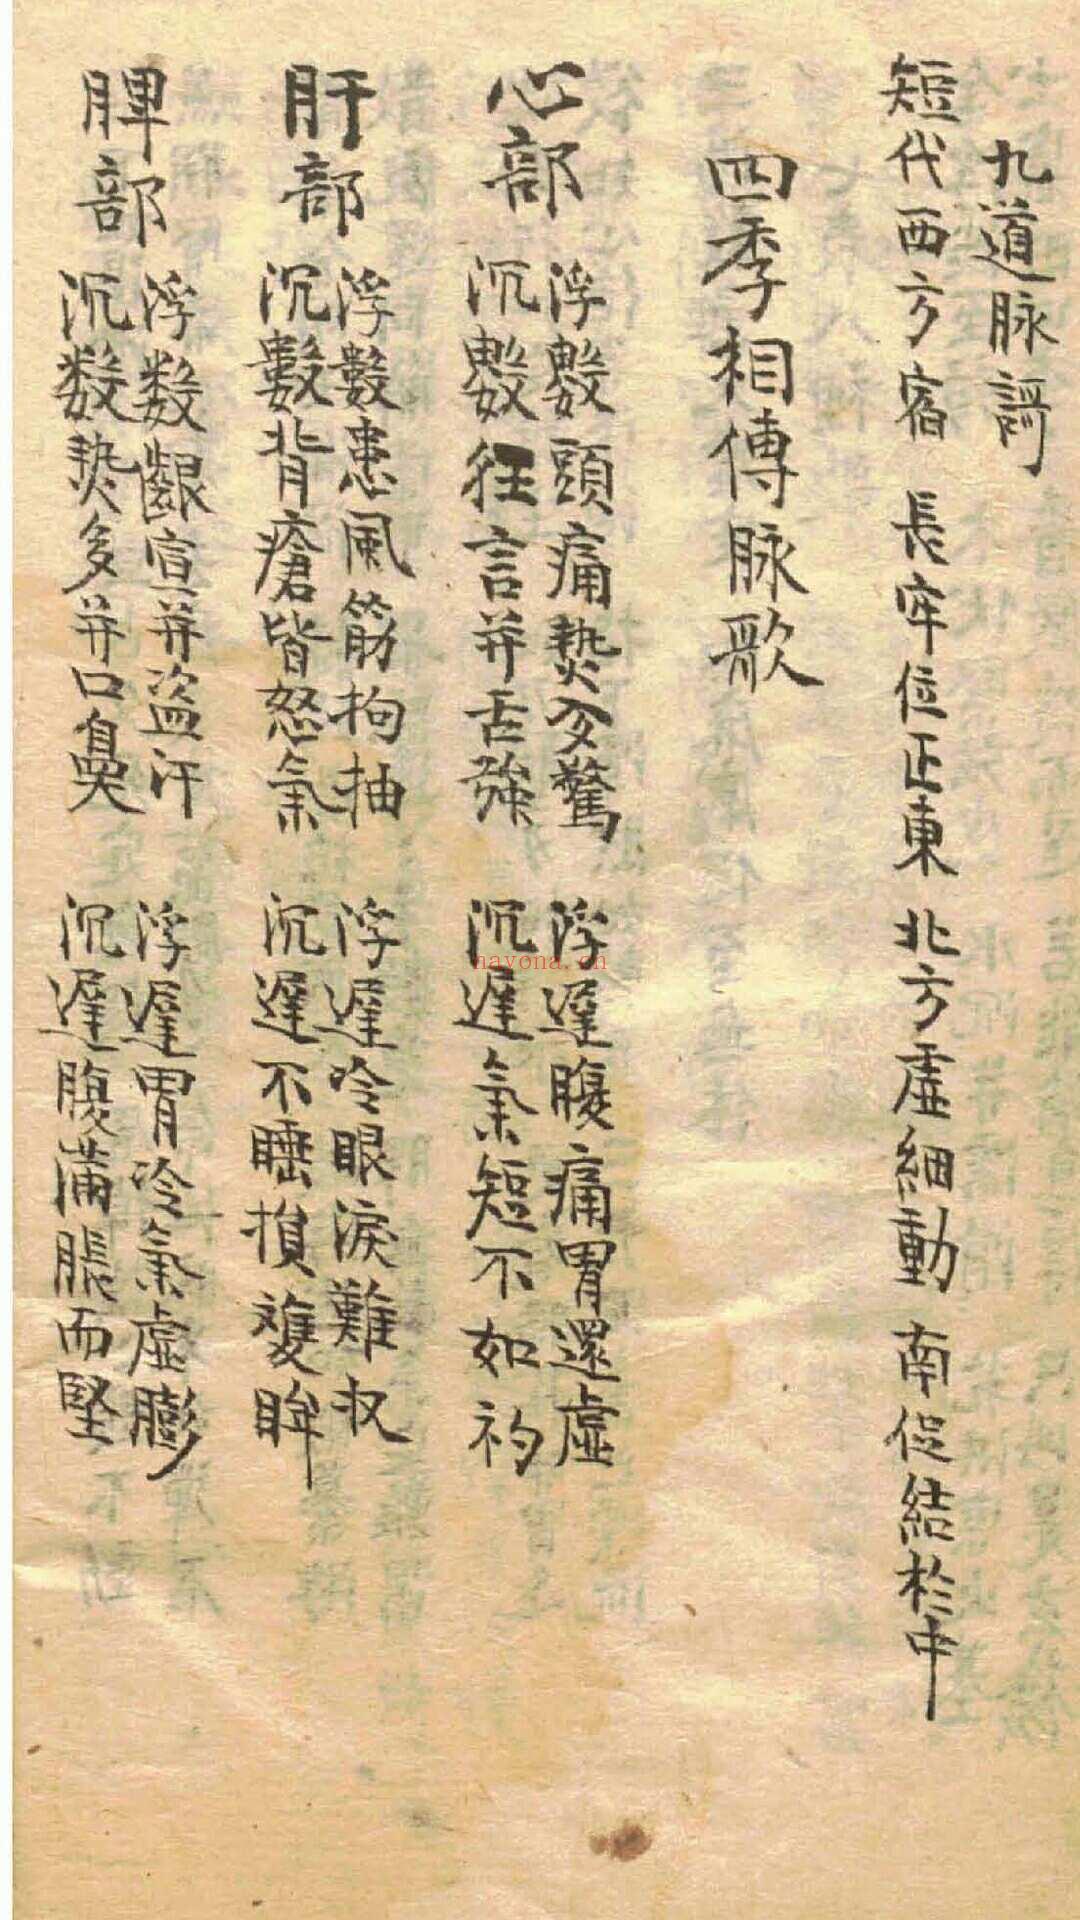 九道脉謌
短代西方宿 長牢位正東 北方虛細動 南促結於中
四季相傳脉歌
心部
浮數頭痛熱多驚 浮遲腹痛胃還虛
沉數狂言并舌強 沉遲氣短不如礿
肝部
浮數患風筋拘抽 浮遲冷眼淚難收
沉數背瘡皆怒氣 沉遲不睡損雙眸
脾部
浮数齦宣并盜汗 浮遲胃冷氣虛膨
沉数熱多并口臭 沉遲腹滿脹而堅
nayona.cn